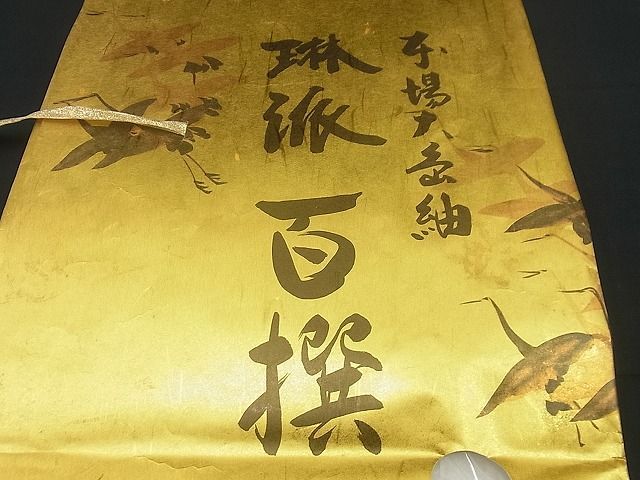 本場大島紬
琳派百撰